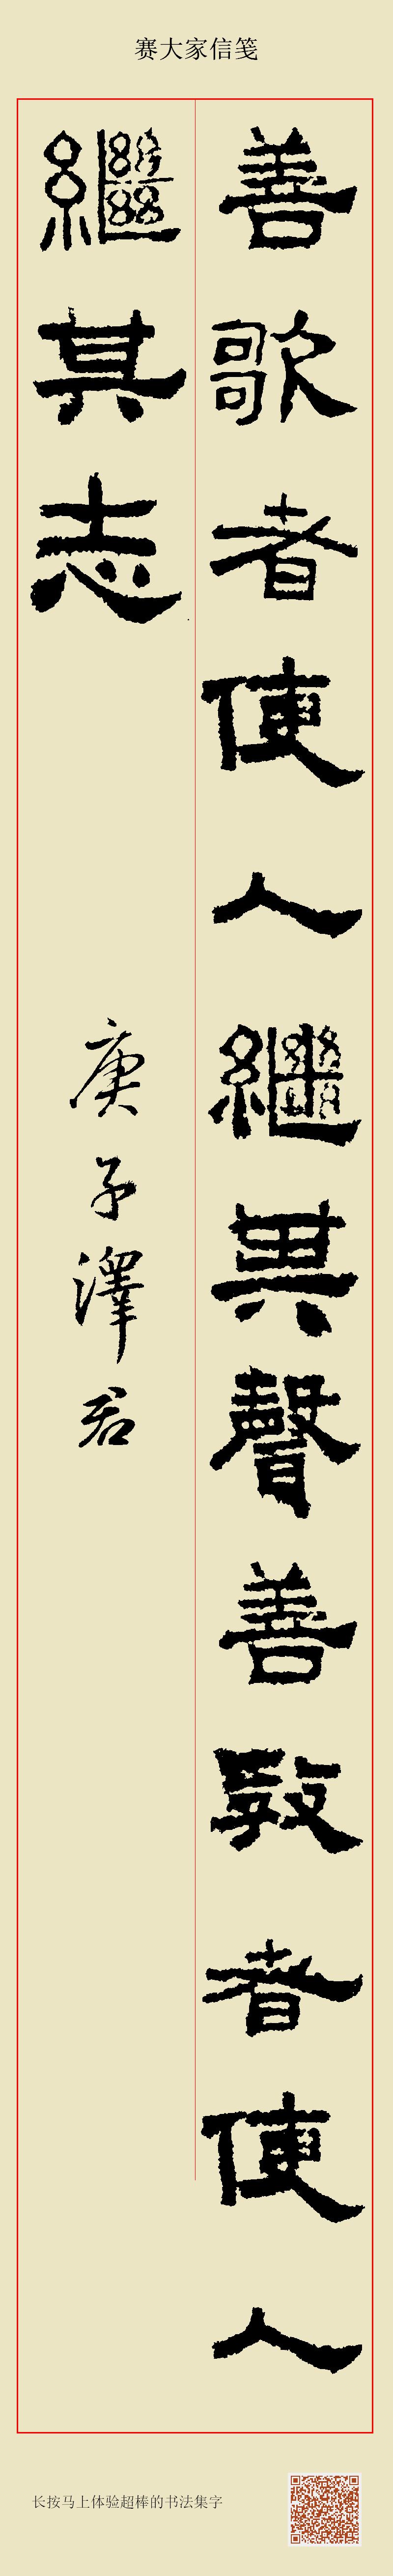 赛大家信笺
善歌者使人繼其聲善教者使人
繼其志
庚子澤君
长按马上体验超棒的书法集字